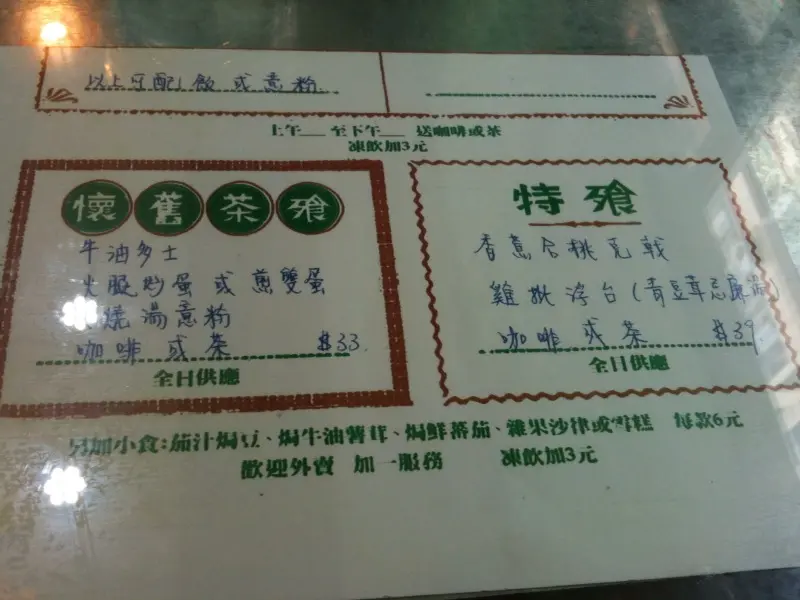 以上可配飯或意粉
上午___至下午___ 送咖啡或茶
凍飲加3元
懷舊茶飧
牛油多士
火腿炒蛋或煎雙蛋
燒湯意粉
咖啡或茶 $33.
全日供應
特飧
香蕉合桃克戟
雞批浮台(青豆茸忌廉湯)
咖啡或茶 $39.
全日供應
另加小食:茄汁焗豆、焗牛油薯茸、焗鮮蕃茄、雜果沙律或雪糕 每款6元
歡迎外賣 加一服務 凍飲加3元